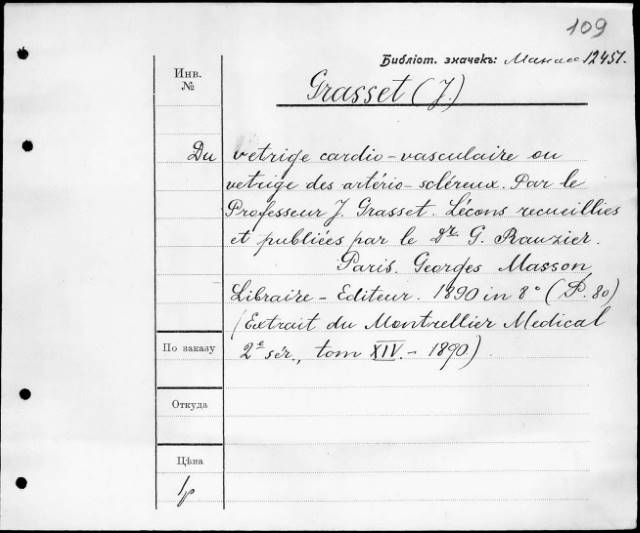 109
Библіот. значекъ: Манасе 12451.
Инв.
№
Grasset (J.)
Du vetrige cardio-vasculaire ou
vetrige des artério-scléreux. Par le
Professeur J. Grasset. Lécons recueillies
et publiées par le Dr G. Rauzier.
Paris. Georges Masson,
Libraire-Editeur. 1890 in 8° (P. 80)
(Extrait du Montrellier Medical
По заказу
2e sér., tom XIV. - 1890)
Откуда
Цѣна
1р